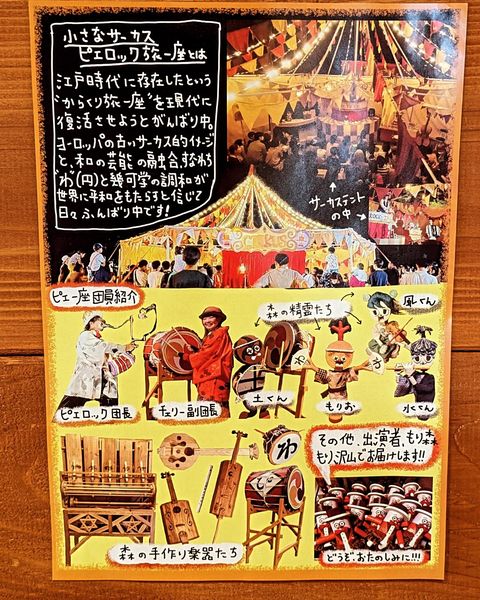 小さなサーカス
ピエロック旅一座とは
江戸時代に存在したという
"からくり旅一座"を現代に
復活させようとがんばり中。
ヨーロッパの古いサーカス的イメージ
と、和の芸能の融合、すなわち
"わ"(円)と幾何学の調和が
世界に平和をもたらすと信じて
日々ふんばり中です!
サーカステント
の中
ピエ一座団員紹介
森の精霊たち
風くん
ピエロック団長
チェリー副団長
土くん
もりお
水くん
わ
その他、出演者、もり森
もり沢山でお届けします!!
森の手作り楽器たち
どうぞ、おたのしみに!!!